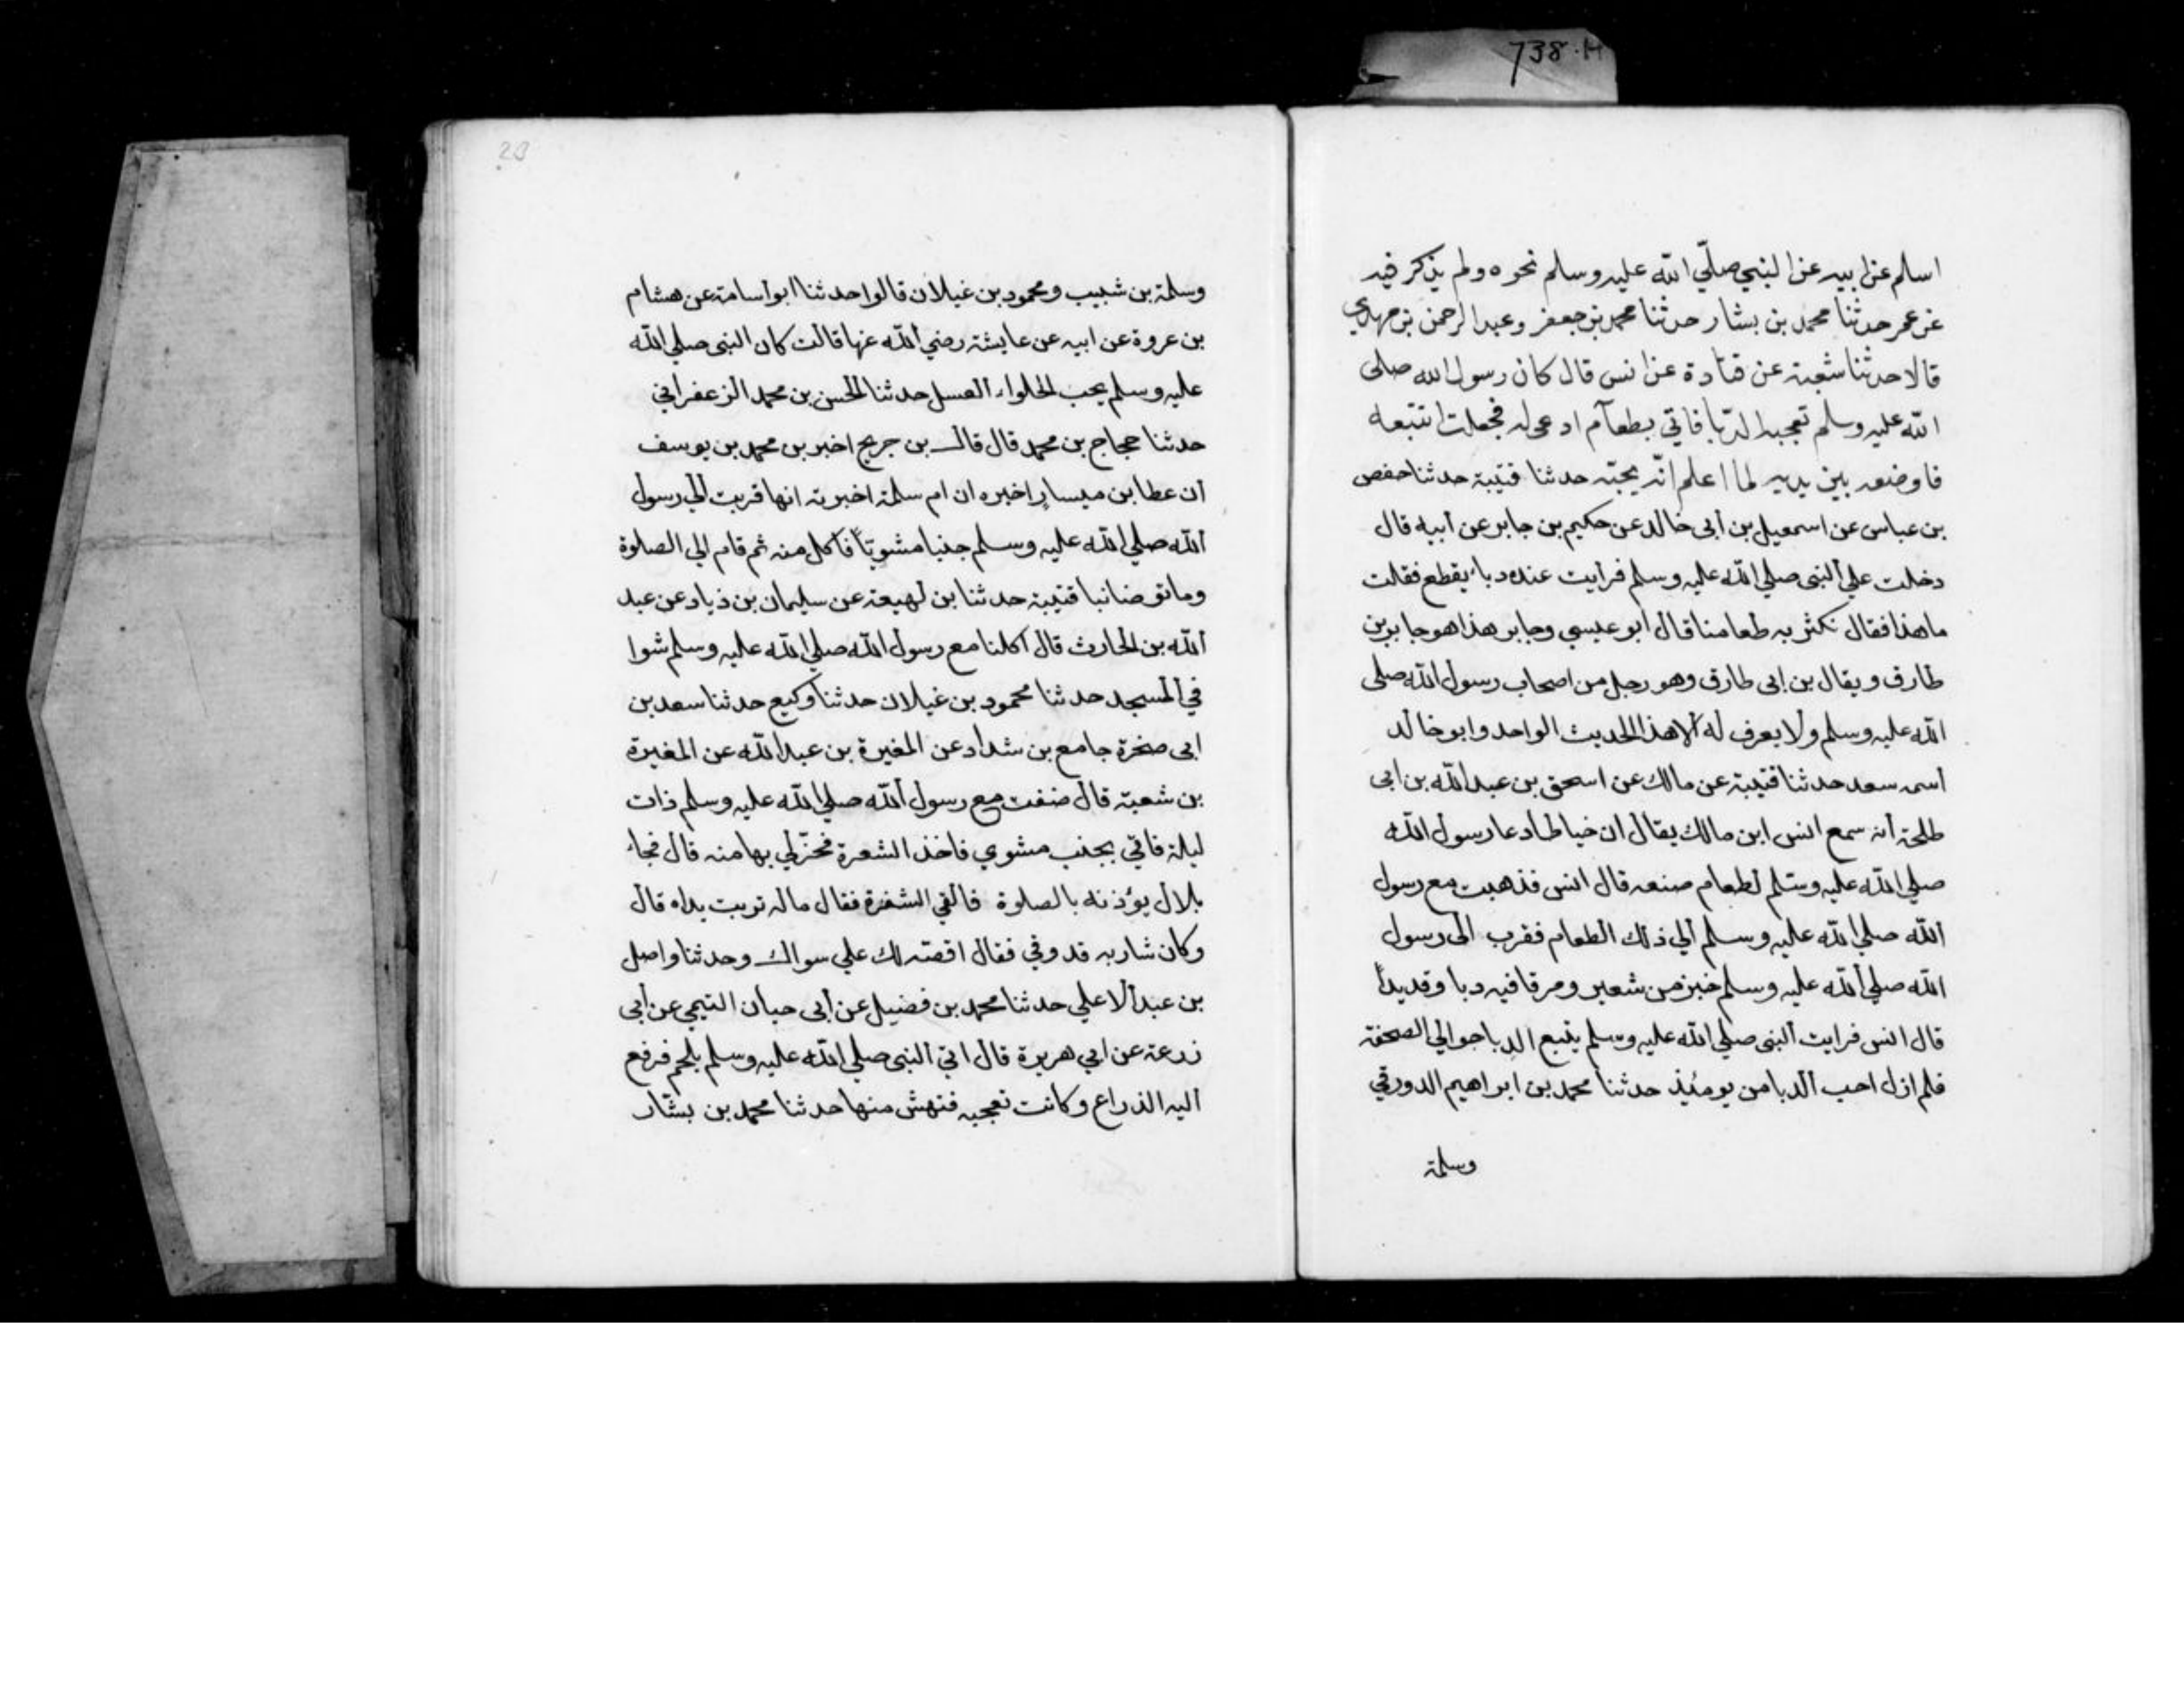 738.H
اسلم عن ابيه عن النبي صلّي الله عليه وسلم نحوه ولم يذكر فيه
عن عمر حدثنا محمد بن بشار حدثنا محمد بن جعفر وعبد الرحمن بن مهدي
قالا حدثنا شعبة عن قتادة عن انس قال كان رسول الله صلى
الله عليه وسلم تعجبه الدّبا فاتي بطعام او دعي له فجعلت اتتبعه
فاوضعه بين يديه لما اعلم انّه يحبّه حدثنا قتيبة حدثنا حفص
بن عباس عن اسمعيل بن أبى خالد عن حكيم بن جابر عن أبيه قال
دخلت علي ألنبى صلي الله عليه وسلم فرأيت عنده دباء يقطع فقلت
ماهذا فقال نكثر به طعامنا قال ابو عيسي وجابر هذا هو جابر بن
طارق ويقال بن ابى طارق وهو رجل من اصحاب رسول الله صلى
الله عليه وسلم ولا يعرف له ألا هذا الحديث الواحد وابو خالد
أسمه سعد حدثنا قتيبة عن مالك عن اسحق بن عبد الله بن ابى
طلحة أنه سمع انس ابن مالك يقال ان خياطا دعا رسول الله
صلي الله عليه وسّلم لطعام صنعه قال انس فذهبت مع رسول
ألله صلي الله عليه وسلم ألي ذلك الطعام فقرب الى رسول
الله صلي ألله عليه وسلم خبز من شعير ومرقا فيه دبا وقديداً
قال انس فرايت ألنبى صلي الله عليه وسلم يتبع الدبا حوالي الصحفة
فلم ازل احب ألدبا من يومئيذ حدثنا محمد بن ابراهيم الدورقي
وسلمة
20
وسلمة بن شبيب ومحمود بن غيلان قالوا حدثنا ابو أسامة عن هشام
بن عروة عن ابيه عن عايشة رضي ألله عنها قالت كان النبى صلي الله
عليه وسلم يحب الحلواء العسل حدثنا الحسن بن محمد الزعفراني
حدثنا حجاج بن محمد قال قال بن جريج اخبر بن محمد بن يوسف
أن عطا بن ميسار اخبره ان ام سلمة اخبرته انها قربت ألي رسول
ألله صلي الله عليه وسلم جنبا مشويّاً فأكل منه ثم قام الي الصلوة
وما توضا نبا قتيبة حدثنا بن لهيعة عن سليمان بن ذياد عن عبد
ألله بن الحارث قال اكلنا مع رسول الله صلي الله عليه وسلم شوا
في ألمسجد حدثنا محمود بن غيلان حدثنا وكيع حدثنا سعد بن
ابى صخرة جامع بن شداد عن المغيرة بن عبد الله عن المغيرة
بن شعبة قال ضفت مع رسول ألله صلي الله عليه وسلم ذات
ليلة فاتي بجنب مشوي فاخذ الشعرة فحزلي بها منه قال فجاء
بلال يؤذنه بالصلوة فالقي الشفرة فقال ماله تربت يداه قال
وكان شاربه قد وفي فقال اقصّه لك علي سواك وحدثنا واصل
بن عبد ألاعلي حدثنا محمد بن فضيل عن أبى حيان التيمي عن أبى
زرعة عن ابي هريرة قال اتي ألنبى صلي الله عليه وسلم بلحم فرفع
أليه الذراع وكانت تعجبه فنهش منها حدثنا محمد بن بشّار